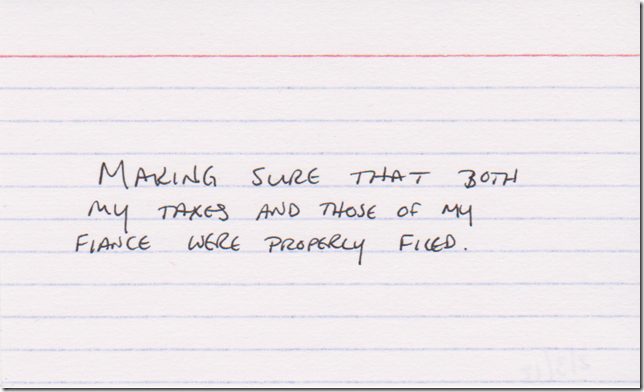 MAKING SURE THAT BOTH
MY TAXES AND THOSE OF MY
FIANCE WERE PROPERLY FILED.